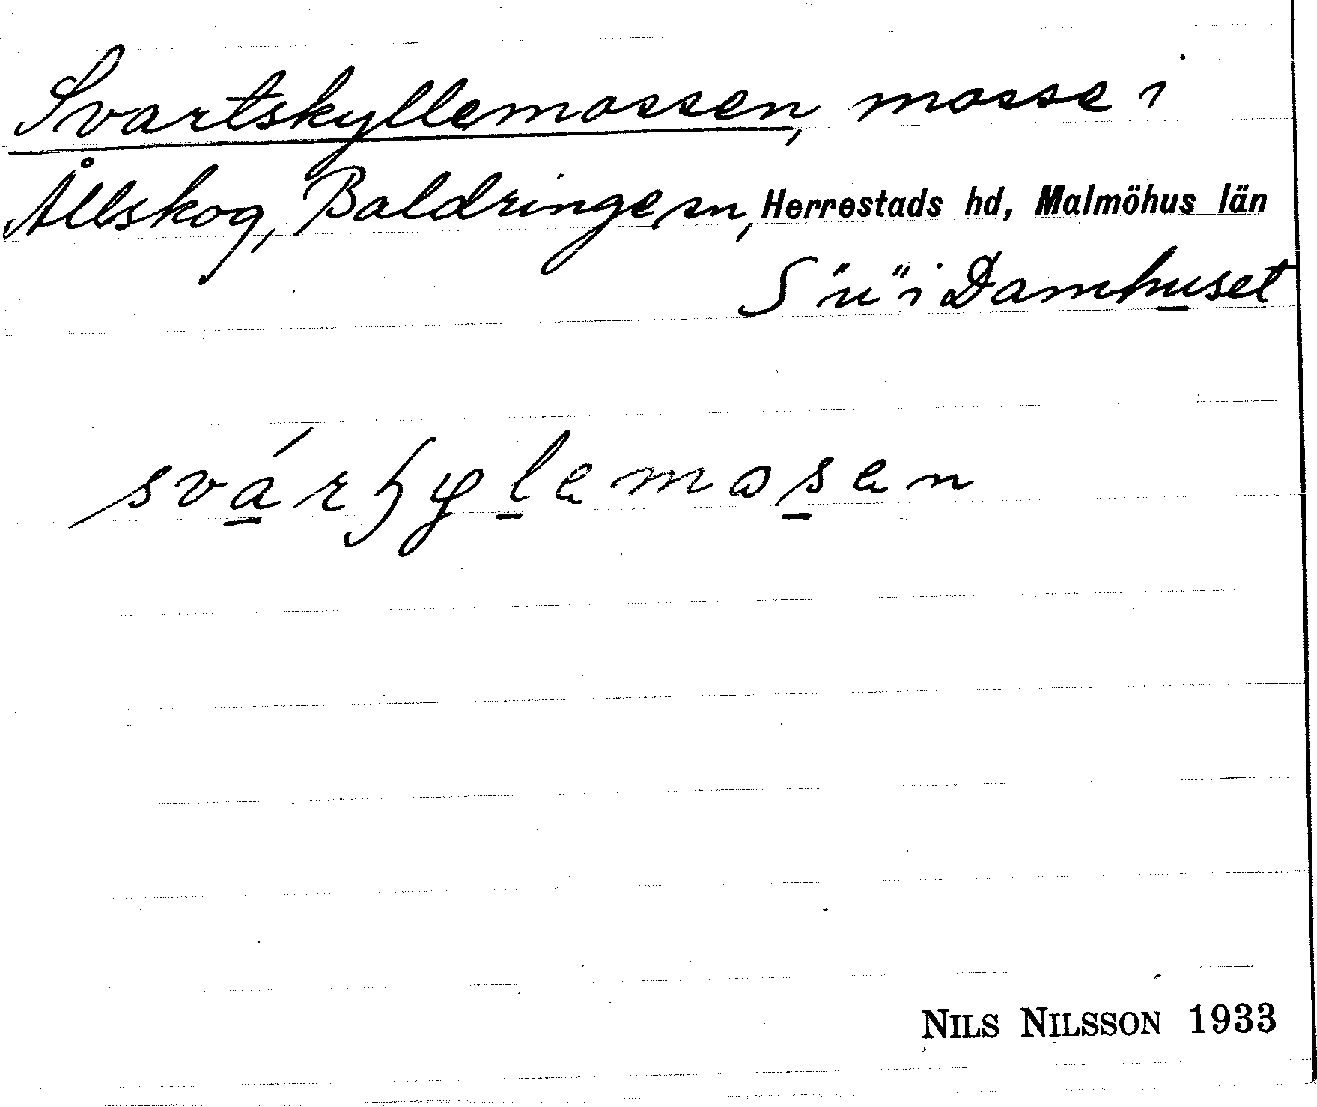 Svartskyllemossen, mosse i
Ållskog, Baldringe sn, Herrestads hd, Malmöhus län
S "u" i Damhuset
NILS NILSSON 1933